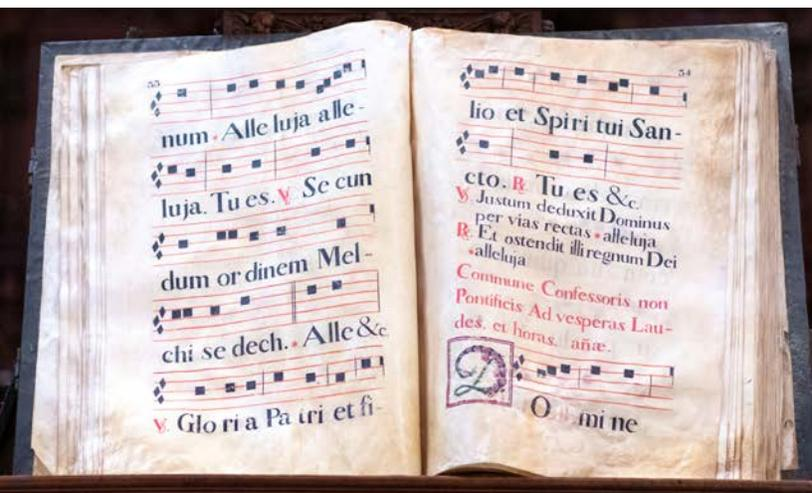 53
num. Alle luja alle-
luja. Tu es. ℣ Se cun
dum or dinem Mel-
chi se dech. Alle &c
℣ Glo ri a Pa tri et fi-
54
lio et Spi ri tui San-
cto. ℟ Tu es &c.
℣ Justum deduxit Dominus
per vias rectas alleluja
℟ Et ostendit illi regnum Dei
alleluja
Commune Confessoris non
Pontificis Ad vesperas Lau-
des. et horas. añæ.
D O mi ne